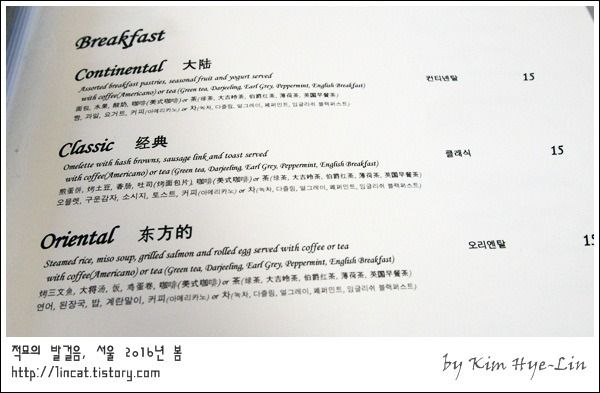 Breakfast
Continental 大陆
Assorted breakfast pastries, seasonal fruit and yogurt served
with coffee(Americano) or tea (Green tea, Darjeeling, Earl Grey, Peppermint, English Breakfast)
面包, 水果, 酸奶, 咖啡(美式咖啡) or 茶(绿茶, 大吉岭茶, 伯爵红茶, 薄荷茶, 英国早餐茶)
빵, 과일, 요거트, 커피(아메리카노) or 차(녹차, 다즐링, 얼그레이, 페퍼민트, 잉글리쉬 블랙퍼스트)
컨티넨탈 15
Classic 经典
Omelette with hash browns, sausage link and toast served
with coffee(Americano) or tea (Green tea, Darjeeling, Earl Grey, Peppermint, English Breakfast)
煎蛋饼, 烤土豆, 香肠, 吐司(烤面包片), 咖啡(美式咖啡) or 茶(绿茶, 大吉岭茶, 伯爵红茶, 薄荷茶, 英国早餐茶)
오믈렛, 구운감자, 소시지, 토스트, 커피(아메리카노) or 차(녹차, 다즐링, 얼그레이, 페퍼민트, 잉글리쉬 블랙퍼스트)
클래식 15
Oriental 东方的
Steamed rice, miso soup, grilled salmon and rolled egg served with coffee or tea
with coffee(Americano) or tea (Green tea, Darjeeling, Earl Grey, Peppermint, English Breakfast)
烤三文鱼, 大将汤, 饭, 鸡蛋卷, 咖啡(美式咖啡) or 茶(绿茶, 大吉岭茶, 伯爵红茶, 薄荷茶, 英国早餐茶)
연어, 된장국, 밥, 계란말이, 커피(아메리카노) or 차(녹차, 다즐링, 얼그레이, 페퍼민트, 잉글리쉬 블랙퍼스트)
오리엔탈 15
적묘의 발걸음, 서울 2016년 봄
http://lincat.tistory.com
by Kim Hye-Lin